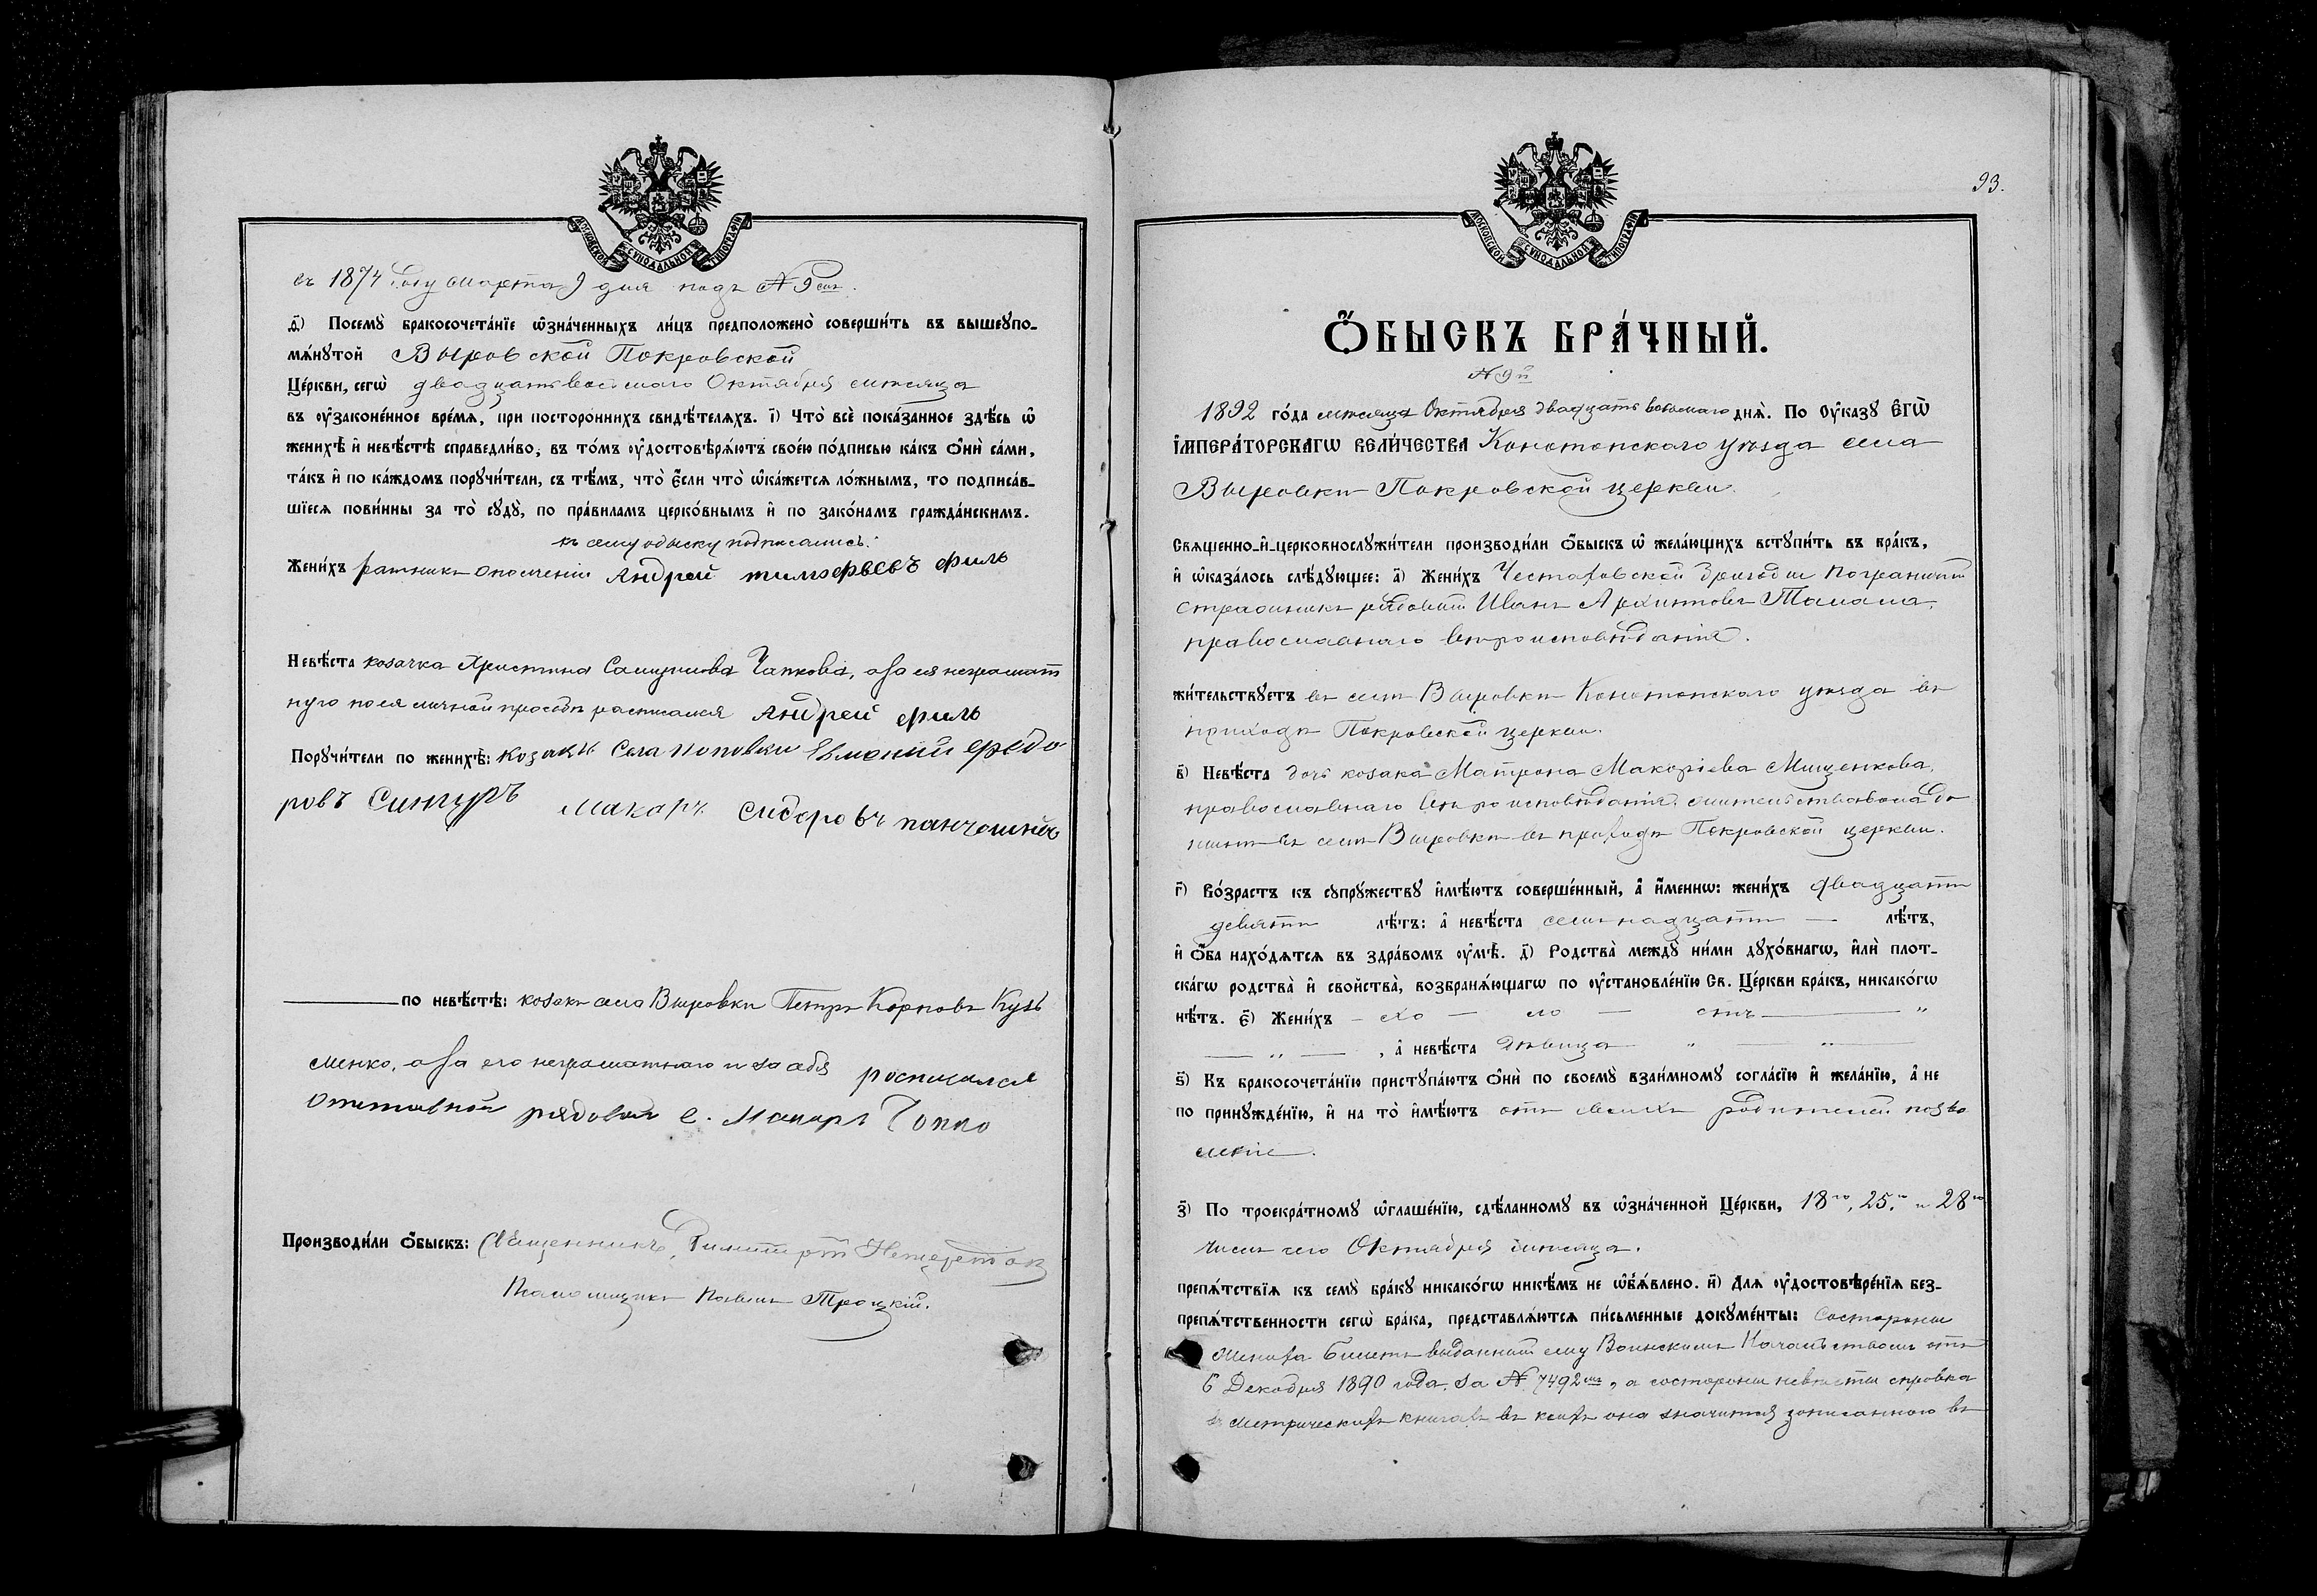 МОСКОВСКОЙ СѴНОДАЛЬНОЙ ТИПОГРАФІИ
въ 1874 году марта 9 дня подъ № 9мъ.
д҃) Посемꙋ̀ бракосочета́нїе ѡ҆зна́ченныхъ ли́цъ предположенò соверши́ть въ вышеꙋпо-
мѧ́нꙋтой Выровской Покровской
Це́ркви, сегѡ̀ двадцать восьмого Октября мѣсяца
въ оу҆законе́нное вре́мѧ, при посторо́ннихъ свидѣ́телѧхъ. і҃) Что̀ всѐ пока́занное здѣ́сь ѡ҆
женихѣ̀ и҆ невѣ́стѣ справедли́во, въ то́мъ оу҆достовѣрѧ́ютъ свое́ю по́дписью ка́къ Ѻ҆нѝ са́ми,
та́къ и҆ по ка́ждомъ порꙋчи́тели, съ тѣ́мъ, что̀ Є҆́сли что̀ ѡ҆ка́жетсѧ ло́жнымъ, то подписа́в-
шїесѧ пови́нны за то̀ сꙋдꙋ̀, по пра́виламъ церко́внымъ и҆ по зако́намъ гражда́нскимъ.
къ сему обыску подписались:
Жени́хъ ратникъ ополченія Андрей тимофѣевъ филь
Невѣ́ста козачка Христина Самуилова Чапкова, а за ея неграмат
ную по ея личной просьбѣ расписался Андрей филь
Порꙋчи́тели по женихѣ̀: козаки Села поповки федо
ровъ Сингуръ Макаръ Сидоровъ
по невѣ́стѣ: козакъ села Выровки Петръ Карповъ Кузь
менко, а за его неграматнаго и за себя росписался
отставной рядовой с. Макаръ Чопко
Производи́ли Ѻ҆́быскъ: Священникъ
Псаломщикъ Павелъ Троцкій.
93.
МОСКОВСКОЙ СѴНОДАЛЬНОЙ ТИПОГРАФІИ
Ѻ҆́БЫСКЪ БРА́ЧНЫЙ.
№ 9й
1892 го́да мѣсяца Октября двадцать восьмаго днѧ̀. По Оу҆ка́зꙋ Є҆ГѠ̀
И҆МПЕРА́ТОРСКАГѠ ВЕЛИ́ЧЕСТВА Конотопскаго уѣзда села
Выровки Покровской церкви.
Свѧщенно-и҆-церковнослꙋжи́тели производи́ли Ѻ҆́быскъ ѡ҆ жела́ющихъ встꙋпи́ть въ бра́къ,
и҆ ѡ҆каза́лось слѣ́дꙋющее: а҃) Жени́хъ бригады погранич
стражникъ рядовой Иванъ Архиповъ
православнаго вѣроисповѣданія.
жи́тельствꙋетъ въ селѣ Выровкѣ Конотопскаго уѣзда въ
приходѣ Покровской церкви.
в҃) Невѣ́ста дочь козака Матрона Макаріева Мищенкова,
православнаго вѣроисповѣданія. жительствовала до
нынѣ въ селѣ Выровкѣ въ приходѣ Покровской церкви.
г҃) Во́зрастъ къ сꙋпрꙋ́жествꙋ и҆мѣ́ютъ соверше́нный, а҆ и҆́меннѡ: жени́хъ двадцати
девяти лѣ́тъ: а҆ невѣ́ста семьнадцати — лѣ́тъ,
и҆ Ѻ҆́ба нахо́дѧтсѧ въ здра́вомъ оу҆мѣ̀. д҃) Родства̀ междꙋ̀ ни́ми дꙋхо́внагѡ, и҆лѝ плот-
ска́гѡ родства̀ и҆ свойства̀, возбранѧ́ющагѡ по оу҆становле́нїю Св. Це́ркви бра́къ, никако́гѡ
нѣ́тъ. є҃) Жени́хъ — хо — ло — стъ — "
— " — , а҆ невѣ́ста дѣвица " — " —
ѕ҃) Къ бракосочета́нїю пристꙋпа́ютъ Ѻ҆нѝ по своемꙋ̀ взаи́мномꙋ согла́сїю и҆ жела́нїю, а҆ не
по принꙋжде́нїю, и҆ на то̀ и҆мѣ́ютъ отъ своихъ родителей позво
леніе.
з҃) По троекра́тномꙋ ѡ҆глаше́нїю, сдѣ́ланномꙋ въ ѡ҆зна́ченной Це́ркви, 18го, 25го и 28го
числъ сего Октября мѣсяца.
препѧ́тствїѧ къ семꙋ̀ бра́кꙋ никако́гѡ никѣ́мъ не ѡ҆б̾ѧ́влено. и҃) Длѧ оу҆достовѣре́нїѧ без-
препѧ́тственности сегѡ̀ бра́ка, представлѧ́ютсѧ пи́сьменные докꙋме́нты: Со стороны
Жениха Билетъ выданный ему Воинскимъ Начальствомъ отъ
6 Декабря 1890 года за № 7492мъ, а со стороны невѣсты справка
въ метрическихъ книгахъ въ коихъ она значится записанною въ